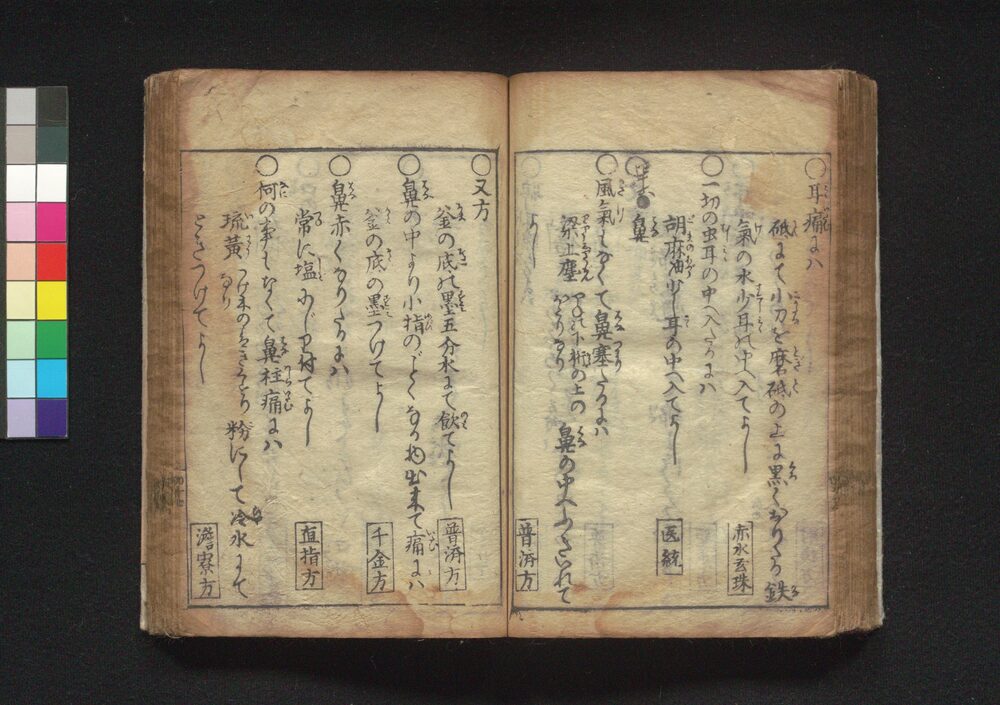 〇耳痛には
砥にて小刀を磨砥の上に黒くなりたる鉄
氣の水少耳の中へ入てよし
赤水玄珠
〇一切の虫耳の中へ入たるには
胡麻油少し耳の中へ入てよし
医統
鼻
〇風氣もなくて鼻塞たるには
梁上塵 の上の
かまりなり 鼻の中へふき入れて
よし
普済方
〇又方
釜の底の墨五分水にて飲てよし
普済方
〇鼻の中より小指のごとくなる物出来て痛には
釜の底の墨つけてよし
千金方
〇鼻赤くなりたるには
常に塩にて付てよし
直指方
〇何の事もなくて鼻柱痛には
琉黄 つけ木の なり 粉にして冷水にて
ときつけてよし
澹寮方